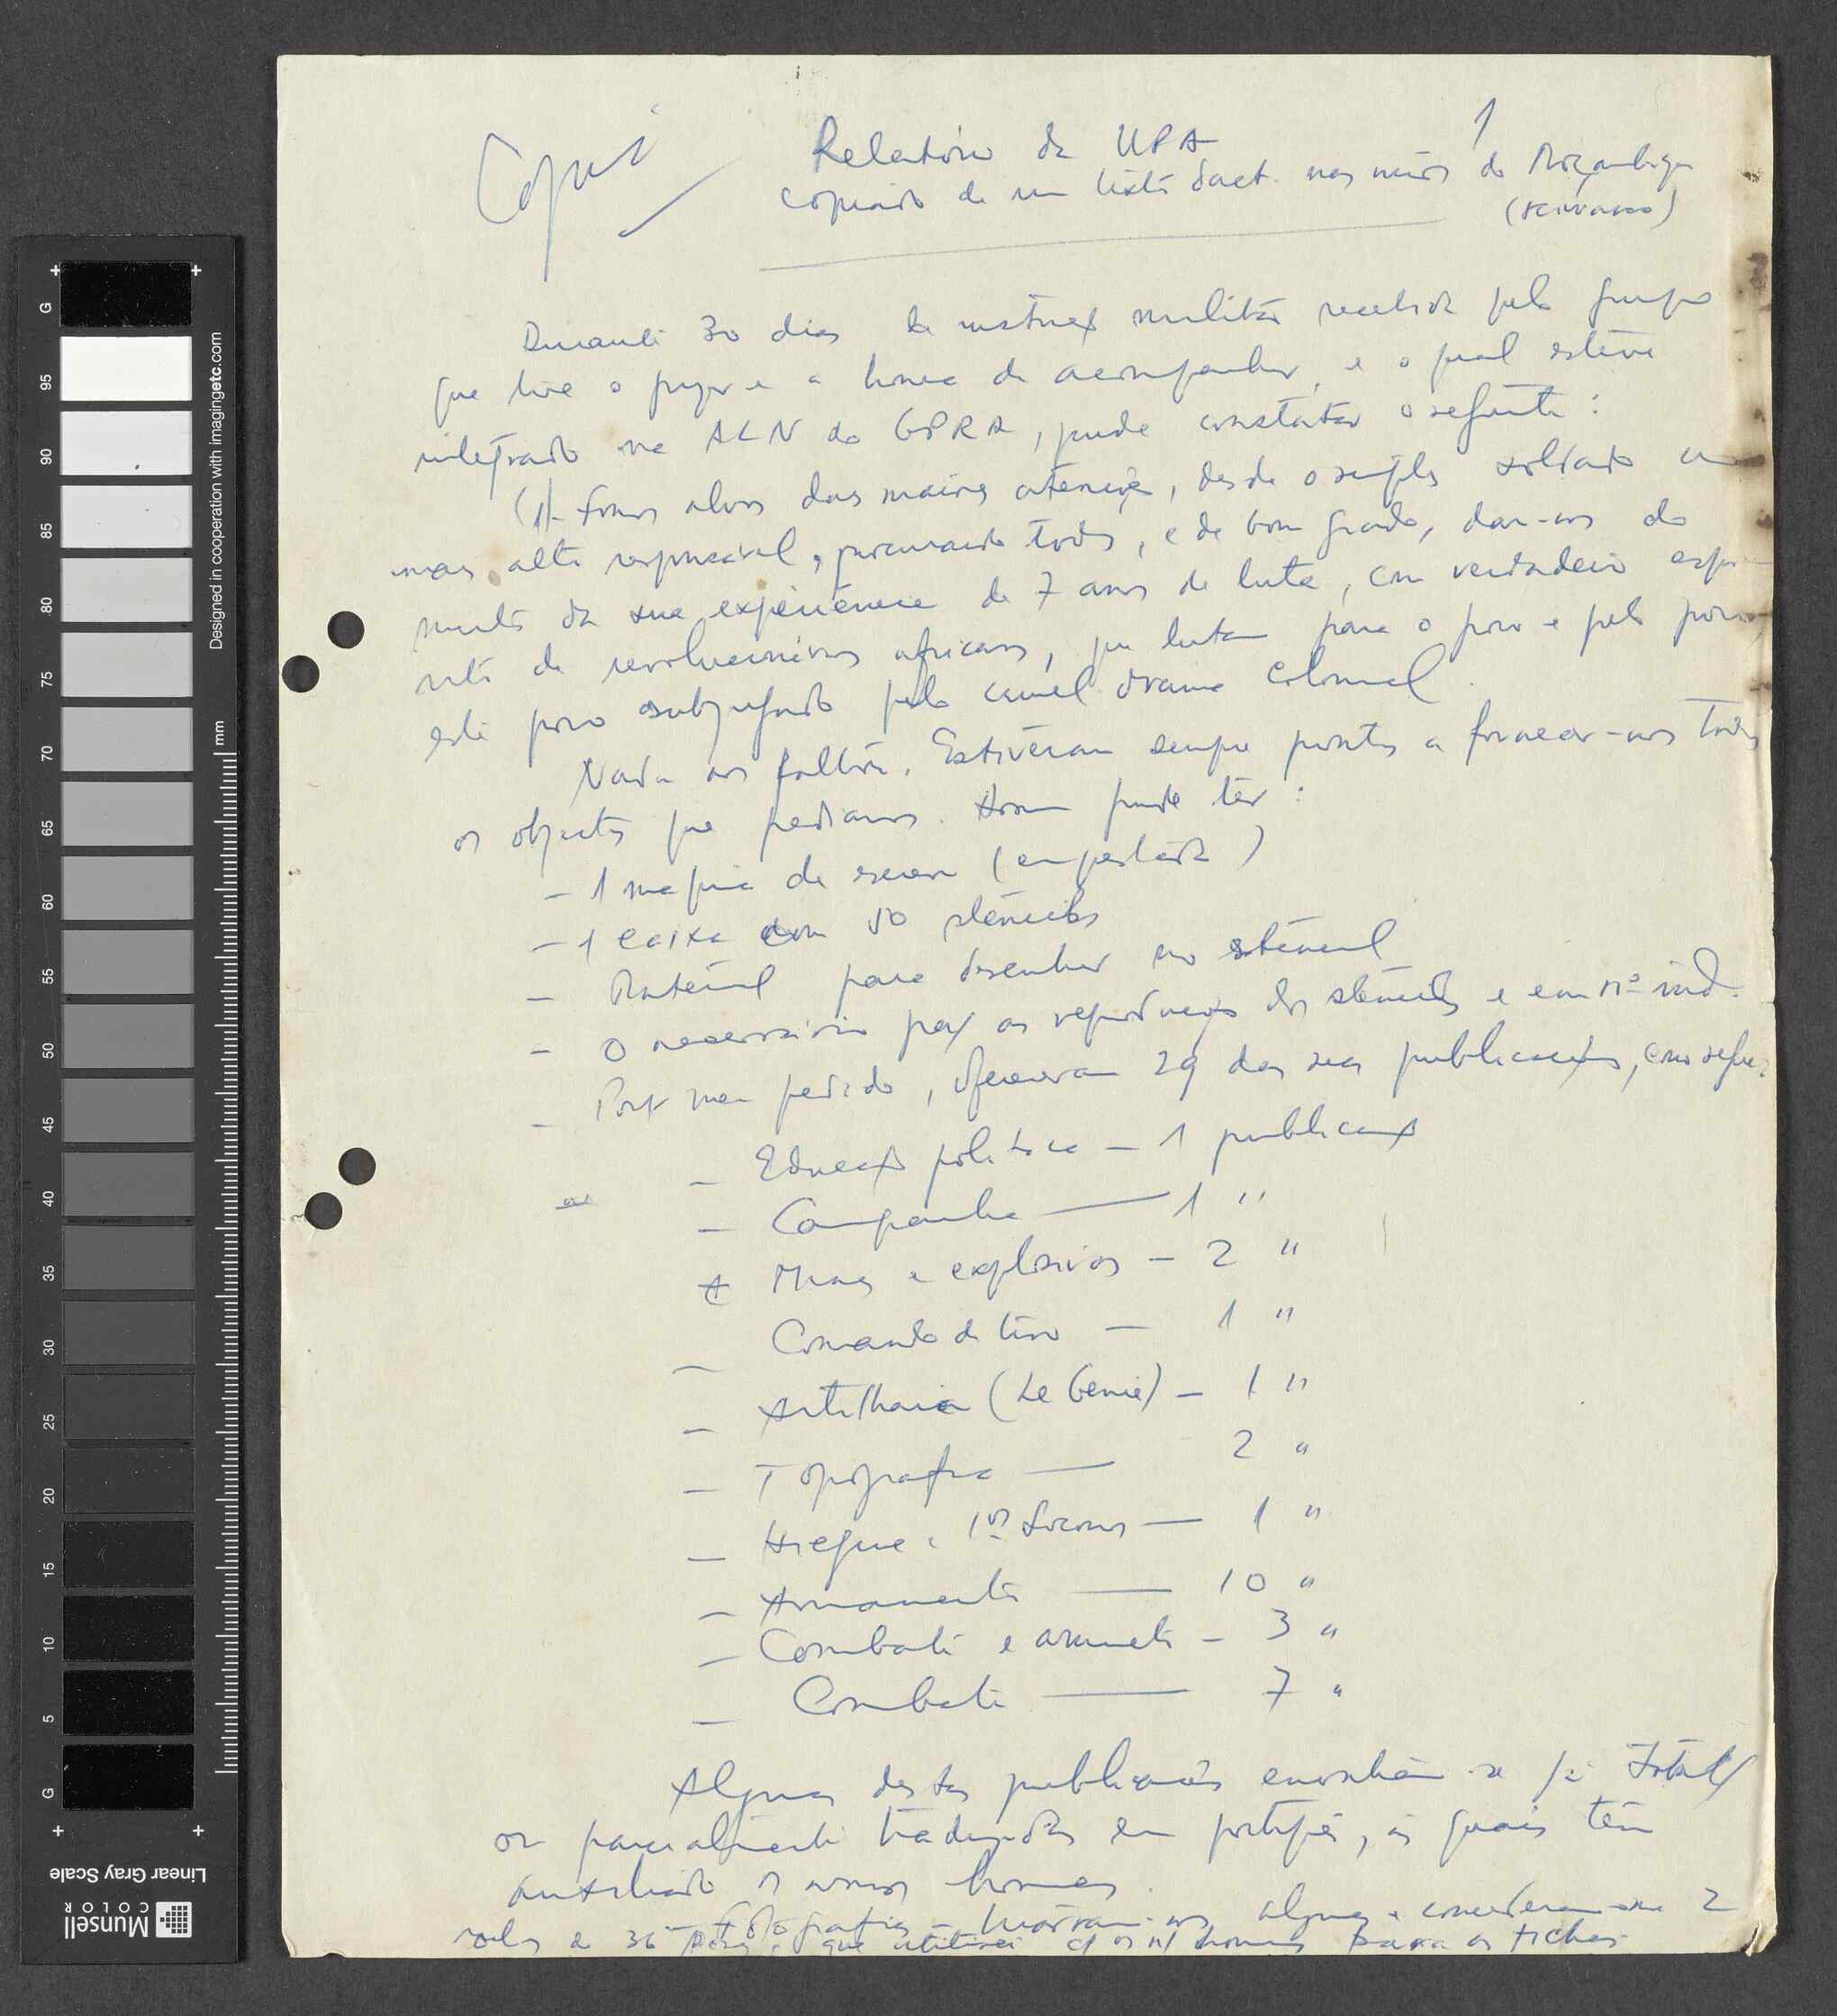 1
Copia
Relatório da UPA
copiado de um texto dact. nas mãos do Moçambique
Durante 30 dias de instrução militar recebida pelo grupo
que tive o prazer e a honra de acompanhar, e o qual esteve
integrado no ALN do GPRA, pude constatar o seguinte:
(1)- Fomos alvos das maiores atenções, desde o simples soldado ao
mais alto responsável, procurando todos, e de bom grado, dar-nos do
muito da sua experiência de 7 anos de luta, com verdadeiro espi
rito de revolucionários africanos, que lutam para o povo e pelo povo,
este povo subjugado pelo cruel drama colonial.
Nada nos faltou. Estiveram sempre prontos a fornecer-nos todos
os objectos que pediamos. Assim pude ter:
- 1 maquina de escrever (emprestada)
- 1 caixa com 50 stenciles
- Material para desenhar no stencil
- O necessário para as reproduções dos stenciles e em nº ind.
- Por meu pedido, ofereceram 29 das suas publicações, como segue:
- Educação politica - 1 publicação
- Campanha - 1 "
Minas e explosivos - 2 "
- Comando de tiro - 1 "
- Artilharia (Le Génie) - 1 "
- Topografia - 2 "
- Higiene e 1os Socorros - 1 "
- Armamento - 10 "
- Combate e armamento - 3 "
- Combate - 7 "
Algumas destas publicações encontram-se já total
ou parcialmente traduzidas em português, as quais têm
auxiliado os nossos homens.
- Fotografias - tiraram-nos algumas e concederam-me 2
rolos de 36 que utilizei c/ os n/ homens para as fichas
Designed in cooperation with imagingetc.com
mm
G 95 90 85 80 75 70 65 60 55 50 45 40 35 30 25 20 15 10 5 G
Linear Gray Scale
Munsell
COLOR